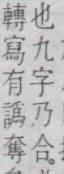 也九字乃合。
轉寫有譌奪